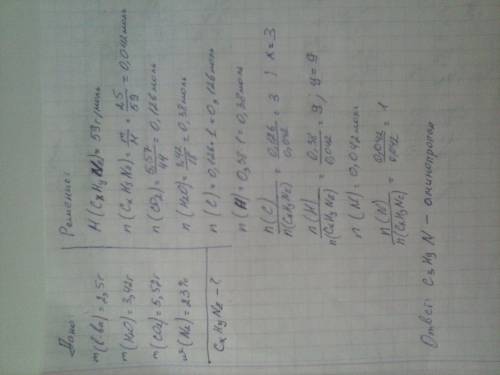 Дано:
m(в-ва) = 2,5г
m(H2O) = 3,42г
m(CO2) = 5,57г
w(N2) = 23%
CxHyNz - ?
Решение:
M(CxHyNz) = 59 г/моль
n(CxHyNz) = m/M = 2,5/59 = 0,042моль
n(CO2) = 5,57/44 = 0,126моль
n(H2O) = 3,42/18 = 0,38моль
n(C) = 0,126·1 = 0,126моль
n(H) = 0,38·1 = 0,38моль
n(C)/n(CxHyNz) = 0,126/0,042 = 3 ; x = 3
n(H)/n(CxHyNz) = 0,38/0,042 = 9 ; y = 9
n(N) = 0,042моль
n(N)/n(CxHyNz) = 0,042/0,042 = 1
Ответ: C3H9N - аминопропан